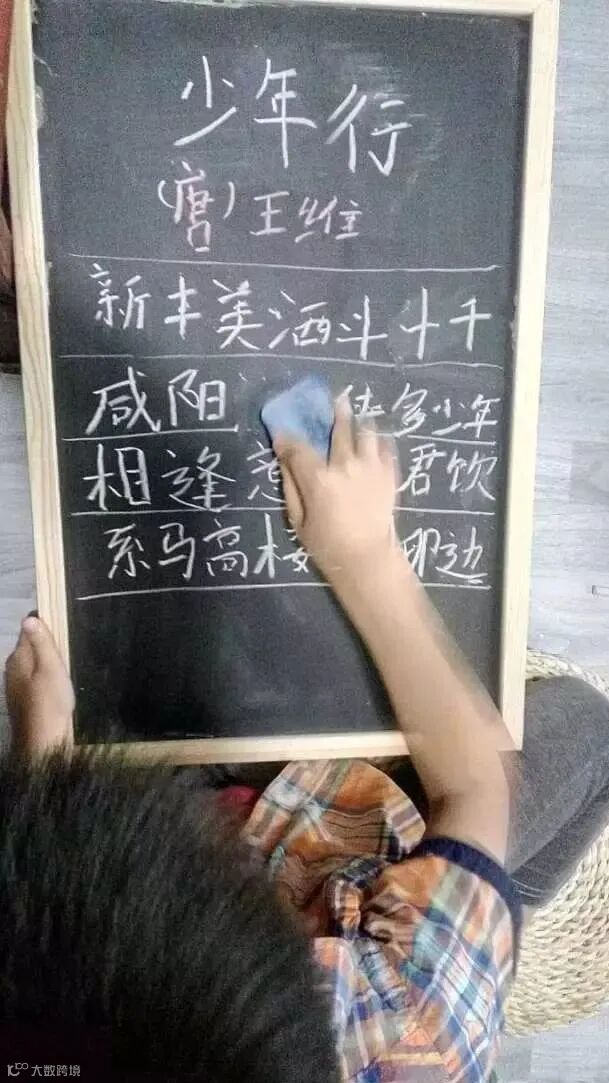 少年行
(唐)王维
新丰美酒斗十千
咸阳 侠多少年
相逢意 君饮
系马高楼 柳边
大数跨境